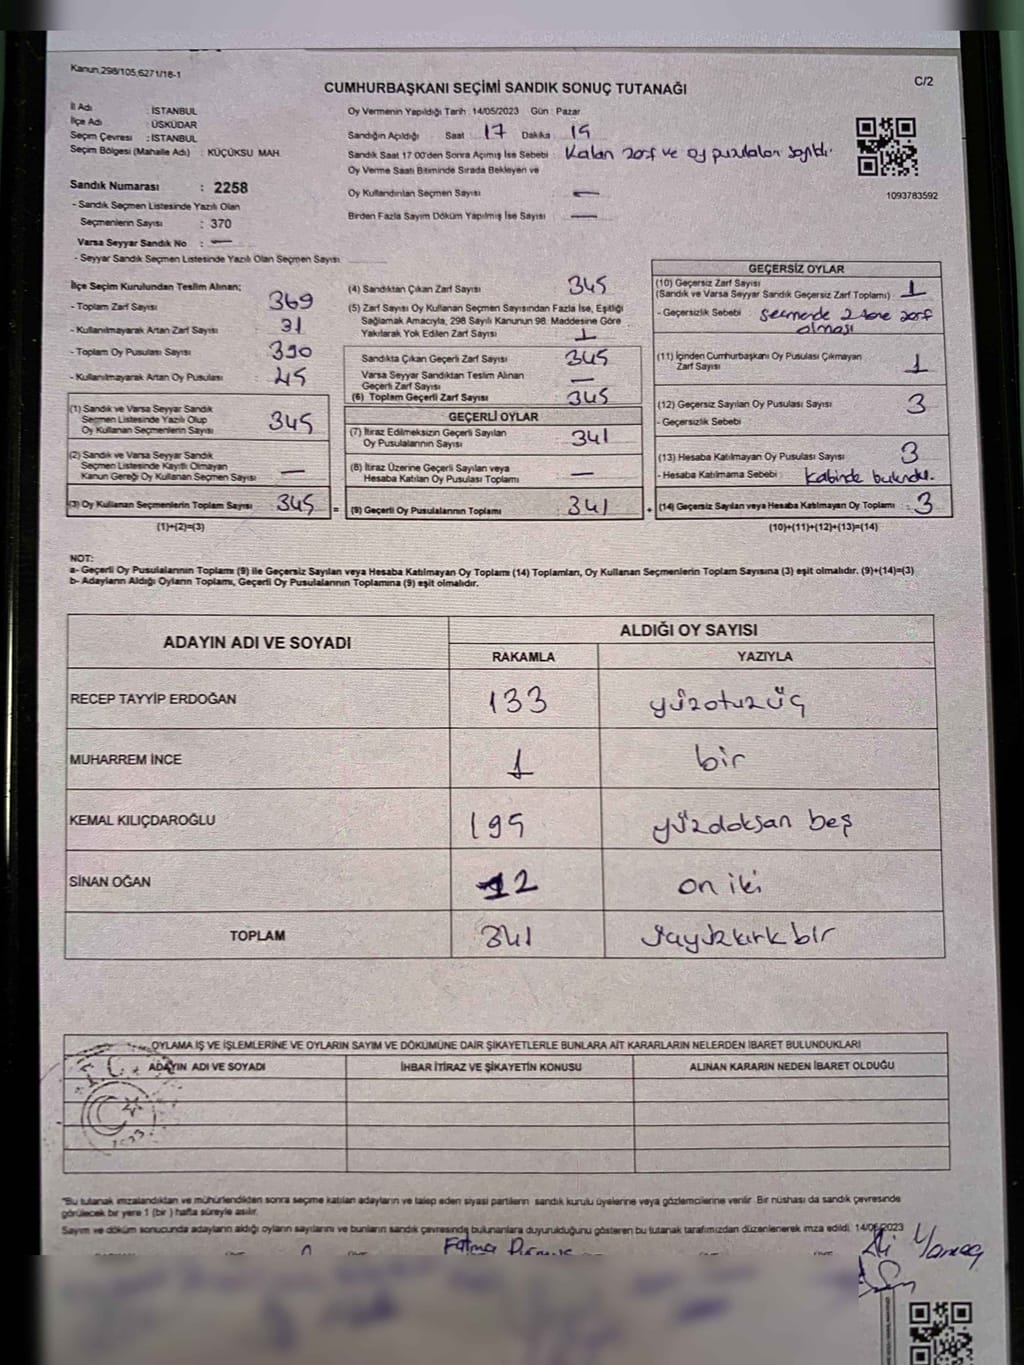 Kanun,298/105,6271/18-1
C/2
CUMHURBAŞKANI SEÇİMİ SANDIK SONUÇ TUTANAĞI
İl Adı : İSTANBUL
İlçe Adı : ÜSKÜDAR
Seçim Çevresi : İSTANBUL
Seçim Bölgesi (Mahalle Adı) : KÜÇÜKSU MAH.
Sandık Numarası : 2258
- Sandık Seçmen Listesinde Yazılı Olan
Seçmenlerin Sayısı : 370
Varsa Seyyar Sandık No : —
- Seyyar Sandık Seçmen Listesinde Yazılı Olan Seçmen Sayısı
Oy Vermenin Yapıldığı Tarih : 14/05/2023 Gün : Pazar
Sandığın Açıldığı Saat 17 Dakika 15
Sandık Saat 17:00'den Sonra Açılmış İse Sebebi : Kalan zarf ve oy pusulaları sayıldı.
Oy Verme Saati Bitiminde Sırada Bekleyen ve
Oy Kullandırılan Seçmen Sayısı —
Birden Fazla Sayım Döküm Yapılmış İse Sayısı —
1093783592
İlçe Seçim Kurulundan Teslim Alınan;
- Toplam Zarf Sayısı : 369
- Kullanılmayarak Artan Zarf Sayısı : 31
- Toplam Oy Pusulası Sayısı : 390
- Kullanılmayarak Artan Oy Pusulası : 45
(1) Sandık ve Varsa Seyyar Sandık
Seçmen Listesinde Yazılı Olup
Oy Kullanan Seçmenlerin Sayısı : 345
(2) Sandık ve Varsa Seyyar Sandık
Seçmen Listesinde Kayıtlı Olmayan
Kanun Gereği Oy Kullanan Seçmen Sayısı : —
(3) Oy Kullanan Seçmenlerin Toplam Sayısı : 345 =
(1)+(2)=(3)
(4) Sandıktan Çıkan Zarf Sayısı : 345
(5) Zarf Sayısı Oy Kullanan Seçmen Sayısından Fazla İse, Eşitliği
Sağlamak Amacıyla, 298 Sayılı Kanunun 98. Maddesine Göre
Yakılarak Yok Edilen Zarf Sayısı : 1
Sandıkta Çıkan Geçerli Zarf Sayısı : 345
Varsa Seyyar Sandıktan Teslim Alınan
Geçerli Zarf Sayısı : —
(6) Toplam Geçerli Zarf Sayısı : 345
GEÇERLİ OYLAR
(7) İtiraz Edilmeksizin Geçerli Sayılan
Oy Pusulalarının Sayısı : 341
(8) İtiraz Üzerine Geçerli Sayılan veya
Hesaba Katılan Oy Pusulası Toplamı : —
(9) Geçerli Oy Pusulalarının Toplamı : 341 +
GEÇERSİZ OYLAR
(10) Geçersiz Zarf Sayısı
(Sandık ve Varsa Seyyar Sandık Geçersiz Zarf Toplamı) : 1
- Geçersizlik Sebebi : seçmende 2 tane zarf
olması
(11) İçinden Cumhurbaşkanı Oy Pusulası Çıkmayan
Zarf Sayısı : 1
(12) Geçersiz Sayılan Oy Pusulası Sayısı : 3
- Geçersizlik Sebebi :
(13) Hesaba Katılmayan Oy Pusulası Sayısı : 3
- Hesaba Katılmama Sebebi : Kabinde bulundu.
(14) Geçersiz Sayılan veya Hesaba Katılmayan Oy Toplamı : 3
(10)+(11)+(12)+(13)=(14)
NOT:
a- Geçerli Oy Pusulalarının Toplamı (9) ile Geçersiz Sayılan veya Hesaba Katılmayan Oy Toplamı (14) Toplamları, Oy Kullanan Seçmenlerin Toplam Sayısına (3) eşit olmalıdır. (9)+(14)=(3)
b- Adayların Aldığı Oyların Toplamı, Geçerli Oy Pusulalarının Toplamına (9) eşit olmalıdır.
ADAYIN ADI VE SOYADI
ALDIĞI OY SAYISI
RAKAMLA YAZIYLA
RECEP TAYYİP ERDOĞAN 133 yüzotuzüç
MUHARREM İNCE 1 bir
KEMAL KILIÇDAROĞLU 195 yüzdoksan beş
SİNAN OĞAN 12 on iki
TOPLAM 341 üçyüzkırkbir
OYLAMA İŞ VE İŞLEMLERİNE VE OYLARIN SAYIM VE DÖKÜMÜNE DAİR ŞİKAYETLERLE BUNLARA AİT KARARLARIN NELERDEN İBARET BULUNDUKLARI
ADAYIN ADI VE SOYADI İHBAR İTİRAZ VE ŞİKAYETİN KONUSU ALINAN KARARIN NEDEN İBARET OLDUĞU
*Bu tutanak imzalandıktan ve mühürlendikten sonra seçime katılan adayların ve talep eden siyasi partilerin sandık kurulu üyelerine veya gözlemcilerine verilir. Bir nüshası da sandık çevresinde
görülecek bir yere 1 (bir) hafta süreyle asılır.
Sayım ve döküm sonucunda adayların aldığı oyların sayılarını ve bunların sandık çevresinde bulunanlara duyurulduğunu gösteren bu tutanak tarafımızdan düzenlenerek imza edildi. 14/05/2023
Fatma